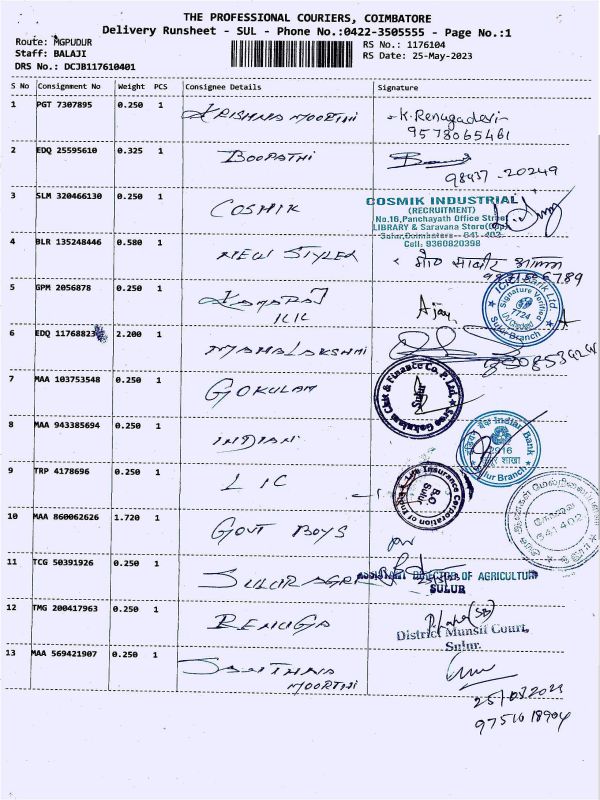 THE PROFESSIONAL COURIERS, COIMBATORE
Delivery Runsheet - SUL - Phone No.:0422-3505555 - Page No.:1
Route: MGPUDUR
Staff: BALAJI
DRS No.: DCJB117610401
RS No.: 1176104
RS Date: 25-May-2023
S No Consignment No Weight PCS Consignee Details Signature
1 PGT 7307895 0.250 1 KRISHNA MOORTHI K. Renugadevi
9578065461
2 EDQ 25595610 0.325 1 BOOPATHI
98437-20249
3 SLM 320466130 0.250 1 COSMIK
COSMIK INDUSTRIAL
(RECRUITMENT)
No.16,Panchayath Office Street
LIBRARY & Saravana Store(Opp)
Sulur,Coimbatore - 641 402.
Cell: 9360820398
4 BLR 135248446 0.580 1 NEW STYLER
5 GPM 2056878 0.250 1 KAMARAJ
ICIC
Ajay
ICICI Bank Ltd.
Signature Verified
7724
Sulur Branch
6 EDQ 11768823 2.200 1 MAHALAKSHMI
7 MAA 103753548 0.250 1 GOKULAM
Sree Gokulam Chit & Finance Co. P. Ltd.
Sulur
8 MAA 943385694 0.250 1 INDIAN
इंडियन बैंक Indian Bank
2916
सुलूर शाखा
Sulur Branch
9 TRP 4178696 0.250 1 LIC
Life Insurance Corporation of India
B.O
Sulur
10 MAA 860062626 1.720 1 GOVT BOYS
641402
11 TCG 50391926 0.250 1 SULUR AGRI
ASSISTANT DIRECTOR OF AGRICULTURE
SULUR
12 TMG 200417963 0.250 1 RENUGA
District Munsif Court,
Sulur.
13 MAA 569421907 0.250 1 SANTHANA
MOORTHI
9751018904